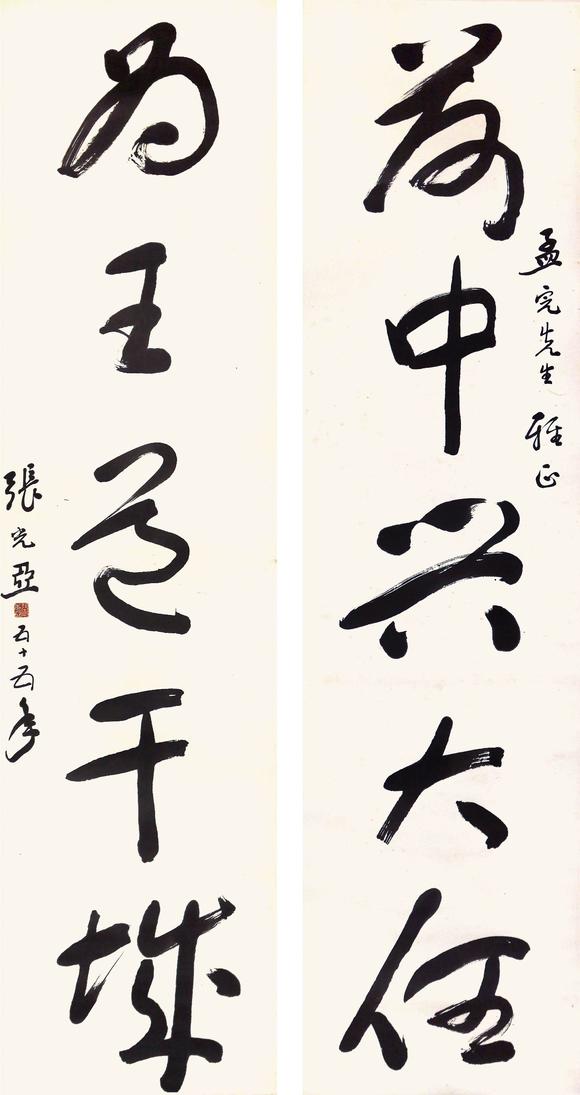 孟完先生 雅正
荷中興大任
為王道干城
張光亞 五十五年